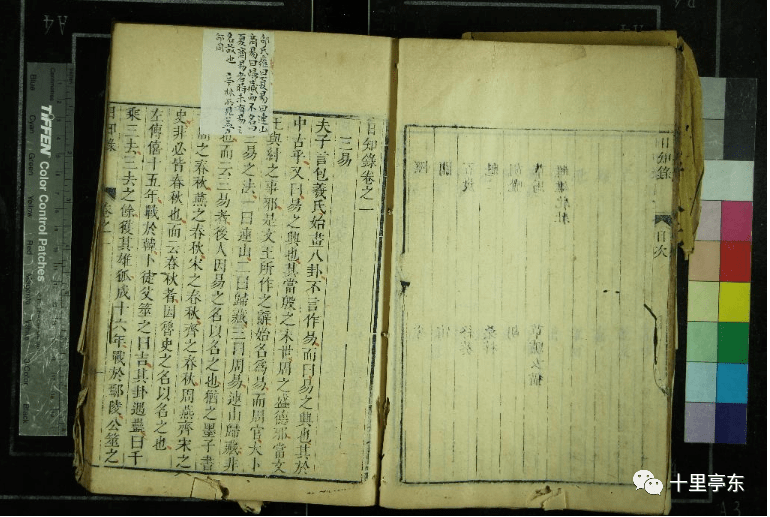 日知錄
目次
曰夏易曰連山
商易曰歸藏而不名曰
夏商易者時未有易之
名故也
日知錄卷之一
三易
夫子言包羲氏始畫八卦不言作易而曰易之興也其於
中古乎又曰易之興也其當殷之末世周之盛德邪當文
王與紂之事邪是文王所作之辭始名爲易而周官大卜
三易之法一曰連山二曰歸藏三曰周易連山歸藏非
也而云三易者後人因易之名以名之也猶之墨子書
周之春秋燕之春秋宋之春秋齊之春秋周燕齊宋之
史非必皆春秋也而云春秋者因魯史之名以名之也
左傳僖十五年戰於韓卜徒父筮之曰吉其卦遇蠱曰千
乘三去三去之餘獲其雄狐成十六年戰於鄢陵公筮之
日知錄
卷之一
TIFFEN Color Control Patches
Blue
Cyan
Green
Yellow
A4
A3
十里亭东